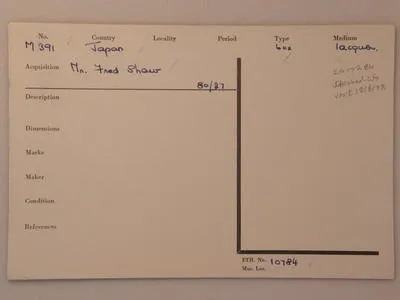 No. Country Locality Period Type Medium
M 391 Japan box lacquer
Acquisition Mr. Fred Shaw
80/27
Description
Dimensions
Marks
Maker
Condition
References
ETH. No. 10784
Mus. Loc.